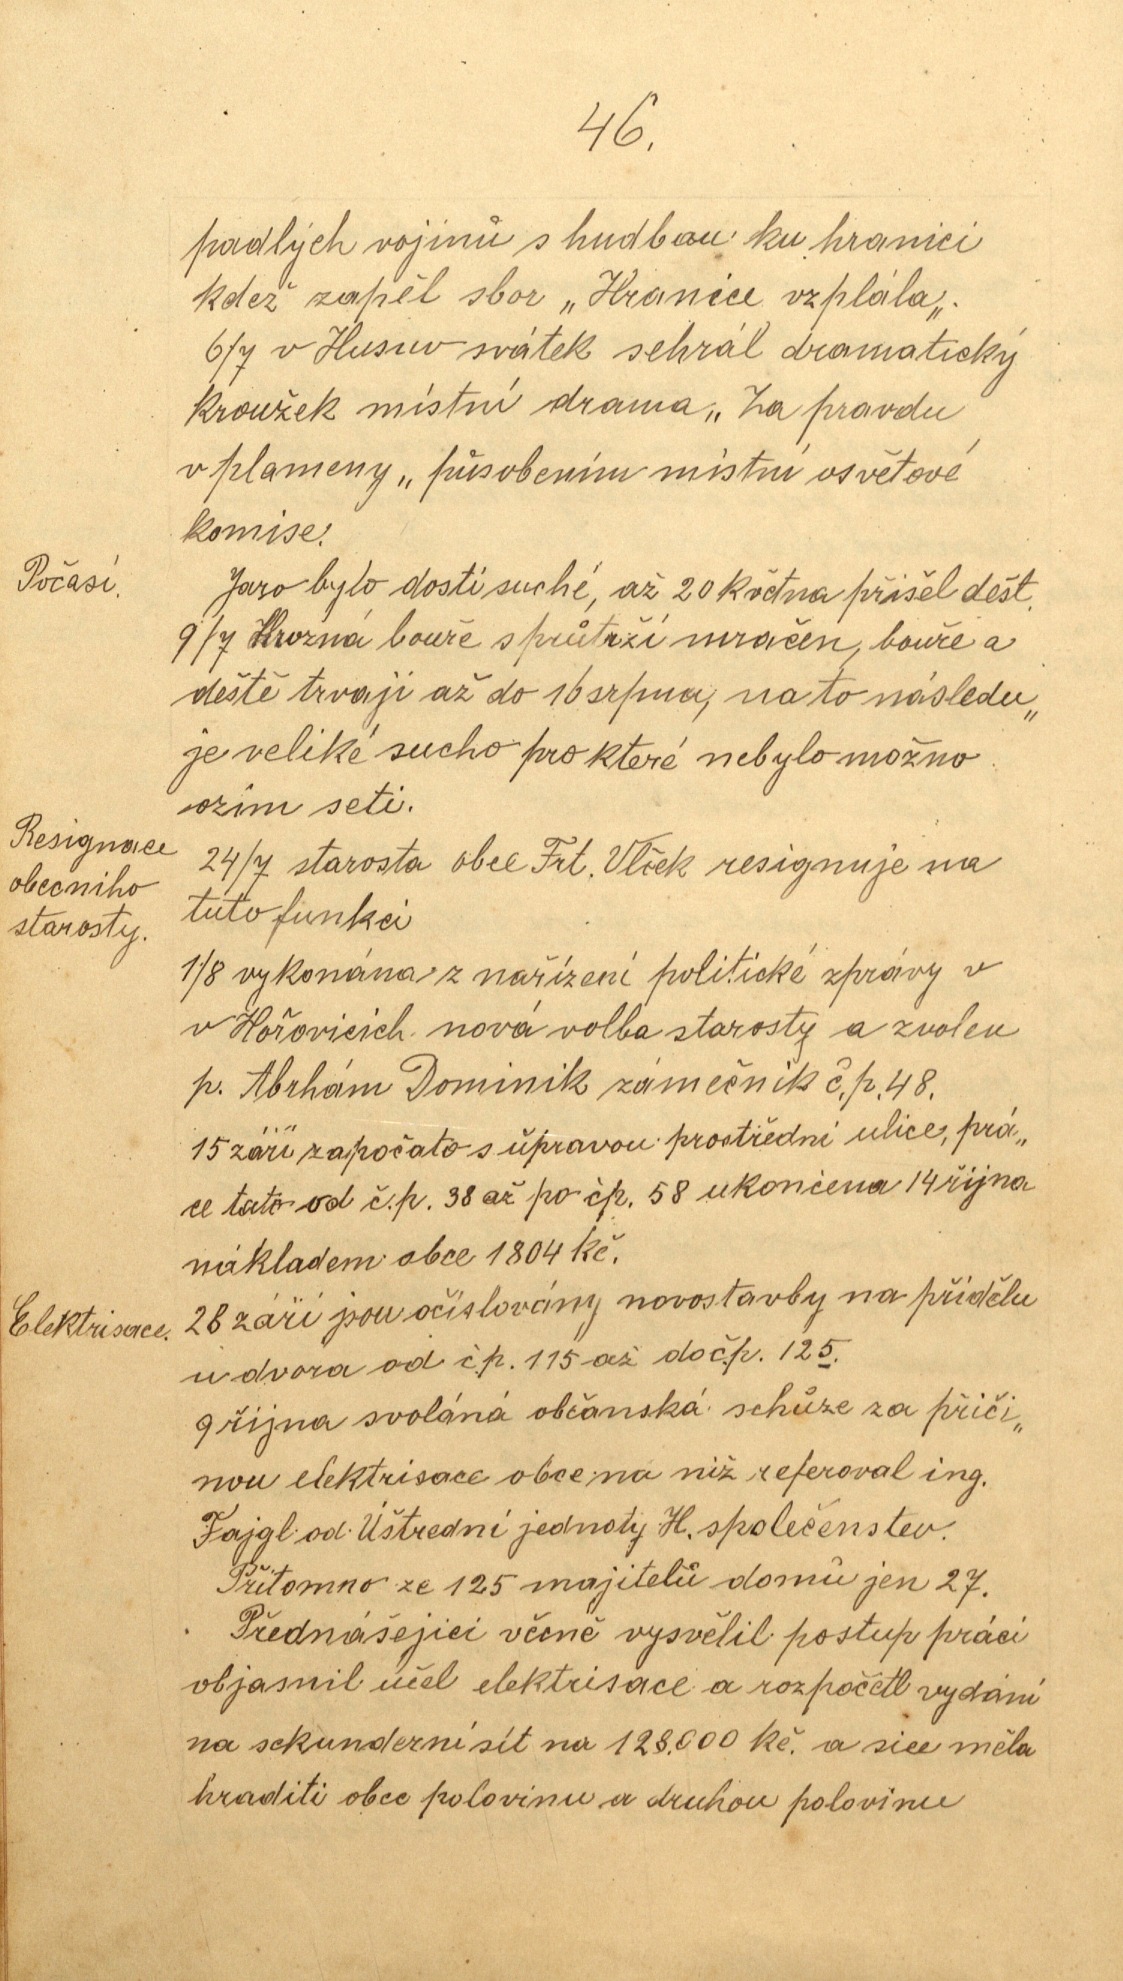 46.
padlých vojínů s hudbou ku hranici
kdež zapěl sbor „Hranice vzplála„.
6/7 v Husuv svátek sehrál dramatický
kroužek místní drama „Za pravdu
v plameny„ působením místní osvětové
komise.
Počasí.
Jaro bylo dosti suché, až 20 května přišel déšt.
9/7 Hrozná bouře s průtrží mračen, bouře a
deště trvají až do 16 srpna, na to následu„
je veliké sucho pro které nebylo možno
ozim seti.
Resignace
obecniho
starosty.
24/7 starosta obce Frt. Vlček resignuje na
tuto funkci
1/8 vykonána z nařízení politické zprávy v
v Hořovicích nová volba starosty a zvolen
p. Abrhám Dominik zámečník č.p. 48.
15 září započato s úpravou prostřední ulice, prá„
ce tato od č.p. 38 až po čp. 58 ukončena 14 října
nákladem obce 1804 kč.
Elektrisace.
28 září jsou očíslovány novostavby na přídělu
u dvora od čp. 115 až do čp. 125.
9 října svoláná občanská schůze za příči„
nou elektrisace obce na niž referoval ing.
Fajgl od Úštredni jednoty H. společenstev.
Přitomno ze 125 majitelů domů jen 27.
Přednášející věcně vysvělil postup prácí
objasnil účel elektrisace a rozpočetl vydání
na sekunderní sít na 128.000 kč. a sice měla
hraditi obce polovinu a druhou polovinu